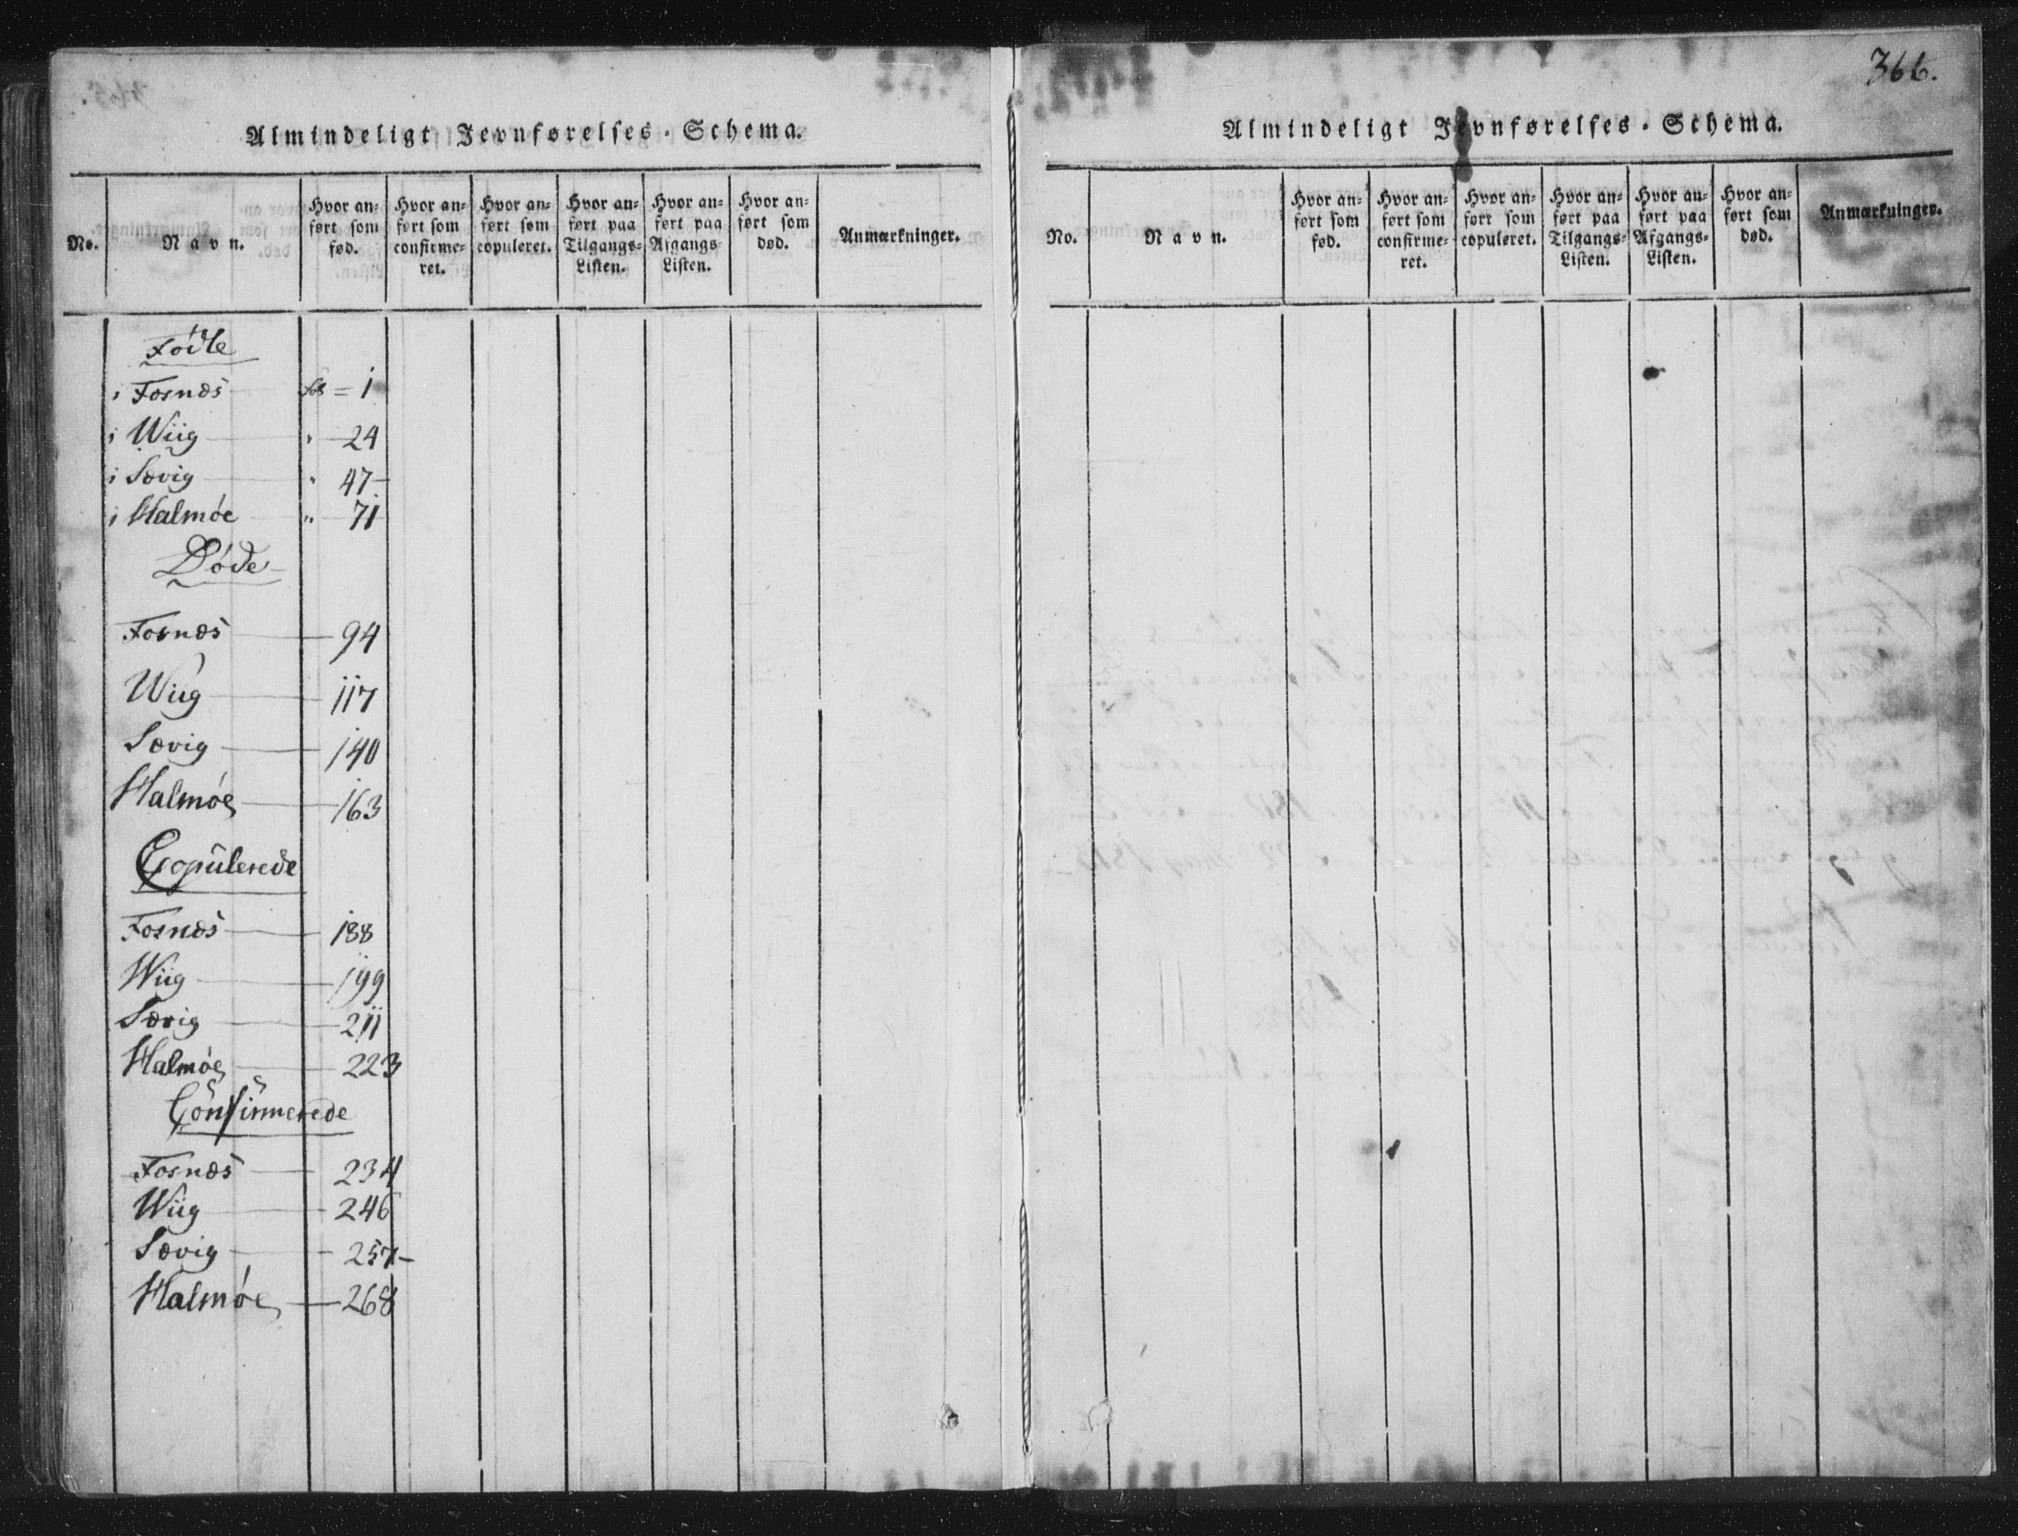 Almindeligt Jevnførelses-Schema.
No.
Navn.
Hvor an-
ført som
fød.
Hvor an-
ført som
confirme-
ret.
Hvor an-
ført som
copuleret.
Hvor an-
ført paa
Tilgangs-
Listen.
Hvor an-
ført paa
Afgangs-
Listen.
Hvor an-
ført som
død.
Anmærkninger.
Födte
i Fosnæs fol = 1
i Wiig " 24
i Sævig " 47
i Halmöe " 71
Döde
Fosnæs 94
Wiig 117
Sævig 140
Halmöe 163
Copulerede
Fosnæs 188
Wiig 199
Sævig 211
Halmöe 223
Confirmerede
Fosnæs 234
Wiig 246
Sævig 257
Halmöe 268
366.
Almindeligt Jevnførelses-Schema.
No.
Navn.
Hvor an-
ført som
fød.
Hvor an-
ført som
confirme-
ret.
Hvor an-
ført som
copuleret.
Hvor an-
ført paa
Tilgangs-
Listen.
Hvor an-
ført paa
Afgangs-
Listen.
Hvor an-
ført som
død.
Anmærkninger.